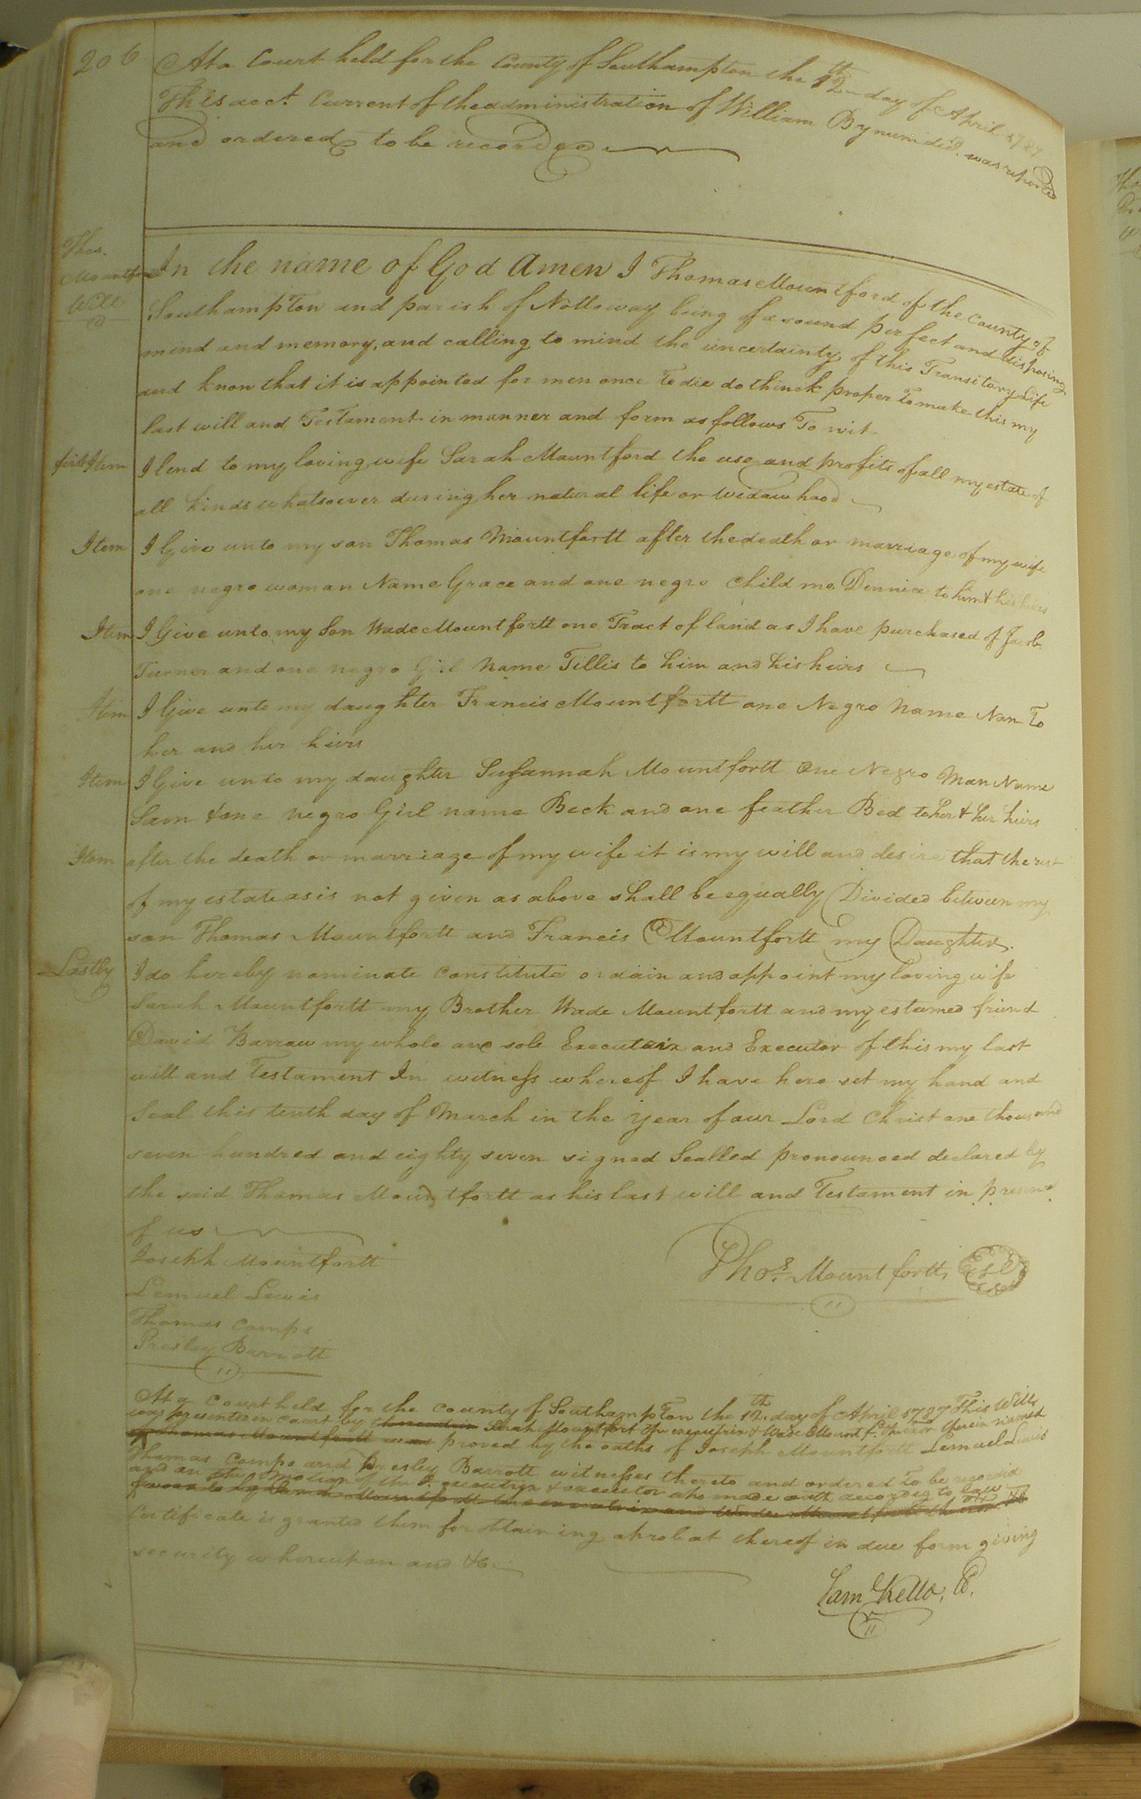 206
At a Court held for the County of Southampton the 12th day of April 1787
This acct. Current of the administration of William Bynum decd. was returned
and ordered to be recorded
Thos.
Mountfort
Will
In the name of God Amen I Thomas Mountford of the County of
Southampton and parish of Nottoway being of a sound perfect and disposing
mind and memory, and calling to mind the uncertainty of this Transitory Life
and know that it is appointed for men once To die do think proper To make this my
last will and Testament in manner and form as follows To wit
first Item I lend to my loving wife Sarah Mountford the use and profits of all my estate of
all kinds whatsoever during her natural life or widawhood
Item I Give unto my son Thomas Mountfortt after the death or marriage of my wife
one negro woman Name Grace and one negro child me Dennice to him & his heirs
Item I Give unto my Son Wade Mountfortt one Tract of land as I have purchased of Jacob
Turner and one negro Girl Name Tillis to him and his heirs
Item I Give unto my daughter Francis Mountfortt one Negro Name Nan To
her and her hiers
Item I Give unto my daughter Susannah Mountfortt One Negro Man Name
Sam & one negro Girl name Beck and one feather Bed to her & her hiers
Item after the death or marriage of my wife it is my will and desire that the rest
of my estate as is not given as above shall be equally Divided between my
son Thomas Mountfortt and Francis Mountfortt my Daughter.
Lastly I do hereby nominate constitute ordain and appoint my loving wife
Sarah Mountfortt my Brother Wade Mountfortt and my estumed friend
David Barrow my whole and sole Executrix and Executor of this my last
will and Testament In witness whereof I have here set my hand and
Seal this tenth day of March in the year of our Lord Christ one thousand
seven hundred and eighty seven signed Sealled pronounced declared by
the said Thomas Mountfortt as his last will and Testament in presence
of us
Joseph Mountfortt
Thos. Mountfortt
Lemuel Lewis
Thomas Camps
Presley Barrott
At a Court held for the County of Southampton the 12th day of April 1787 This Will
was presented in Court by Sarah Mountfort the executrix & Wade Mountfort Executor therein named
proved by the oaths of Joseph Mountfortt Lemuel Lewis
Thomas Camps and Presley Barrott witnesses thereto and ordered To be recorded
and on the motion of the sd. executrix & executor who made oath according to law
Certificate is granted them for obtaining a probat thereof in due form giving
security whereupon and &c.
Saml. Kello, C.